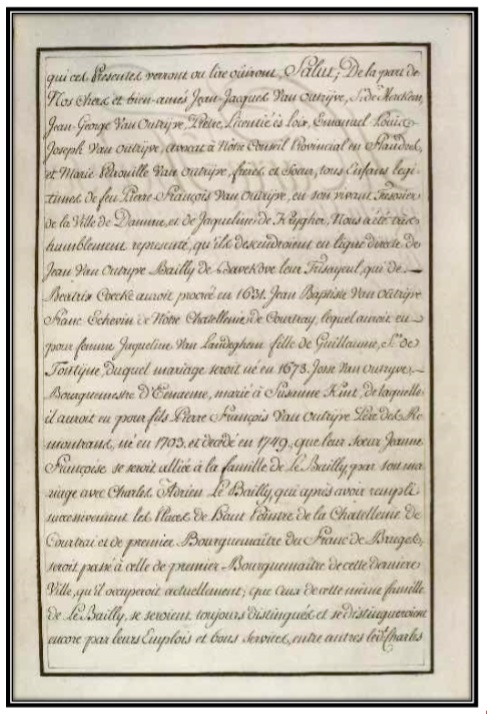 qui ces Presentes verront ou lire oüiront, Salut; De la part de
Nos chers et bien-amés Jean-Jacques Van Outrijve, Sr. de Merckem,
Jean-George Van Outrijve, Prêtre, Licentié ès loix, Emanuel Louis
Joseph Van Outrijve, avocat à Notre Conseil Provincial en Flandres,
et Marie Petronille Van Outrijve, freres et soeur, tous Enfans legi-
times de feu Pierre François Van Outrijve, en son vivant Tresorier
de la Ville de Damme, et de Jaqueline de Knijgher, Nous a été très
humblement representé, qu'ils descendroient en ligne directe de
Jean Van Outrijve Bailly de leur Trisayeul, qui de
Beatrix Coecke auroit procréé en 1631. Jean Baptiste Van Outrijve
Franc Echevin de Notre Chatellenie de Courtray, lequel auroit eu
pour femme Jaqueline Van Landeghem fille de Guillaume, Sr. de
duquel mariage seroit né en 1673. Josse Van Outryve,
Bourguemestre d'Eename, marié à Susanne Kint, de laquelle
il auroit eu pour fils Pierre François Van Outrijve Pere des Re-
montrans, né en 1703. et decedé en 1749, que leur soeur Jeanne
Françoise se seroit alliée à la famille de Le Bailly, par son ma
riage avec Charles Adrien Le Bailly, qui après avoir rempli
successivement les Places de Haut Pointre de la Chatellenie de
Courtrai et de premier Bourguemaître du Franc de Bruges,
seroit passé à celle de premier Bourguemaître de cette derniere
Ville, qu'il occuperoit actuellement; que ceux de cette même famille
de Le Bailly, se seroient toujours distingués et se distingueroient
encore par leurs Emplois et bons services, entre autres ledt. Charles